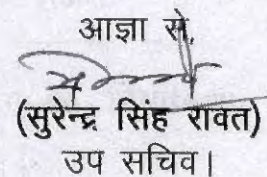 आज्ञा से,
(सुरेन्द्र सिंह रावत)
उप सचिव।